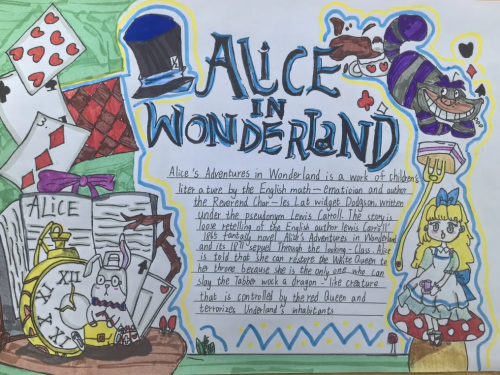 ALiCE
IN
WONDERLaND
Alice's Adventures in Wonderland is a work of children's
liter ature by the English math-ematician and author,
the Reverend Char-les Lat widget Dodgson, written
under the pseudonym Lewis Carroll. The story is
loose retelling of the English author lewis Carroll'
1865 fantasy novel Alice's Adventures in Wonderland
and its 1871 sequel Through the Looking-Class. Alice
is told that she can restore the White Queen to
her throne because she is the only one who can
slay the Jabber wock a dragon-like creature
that is controlled by the red Queen and
terrorizes Underland's inhabitants
ALICE
XII